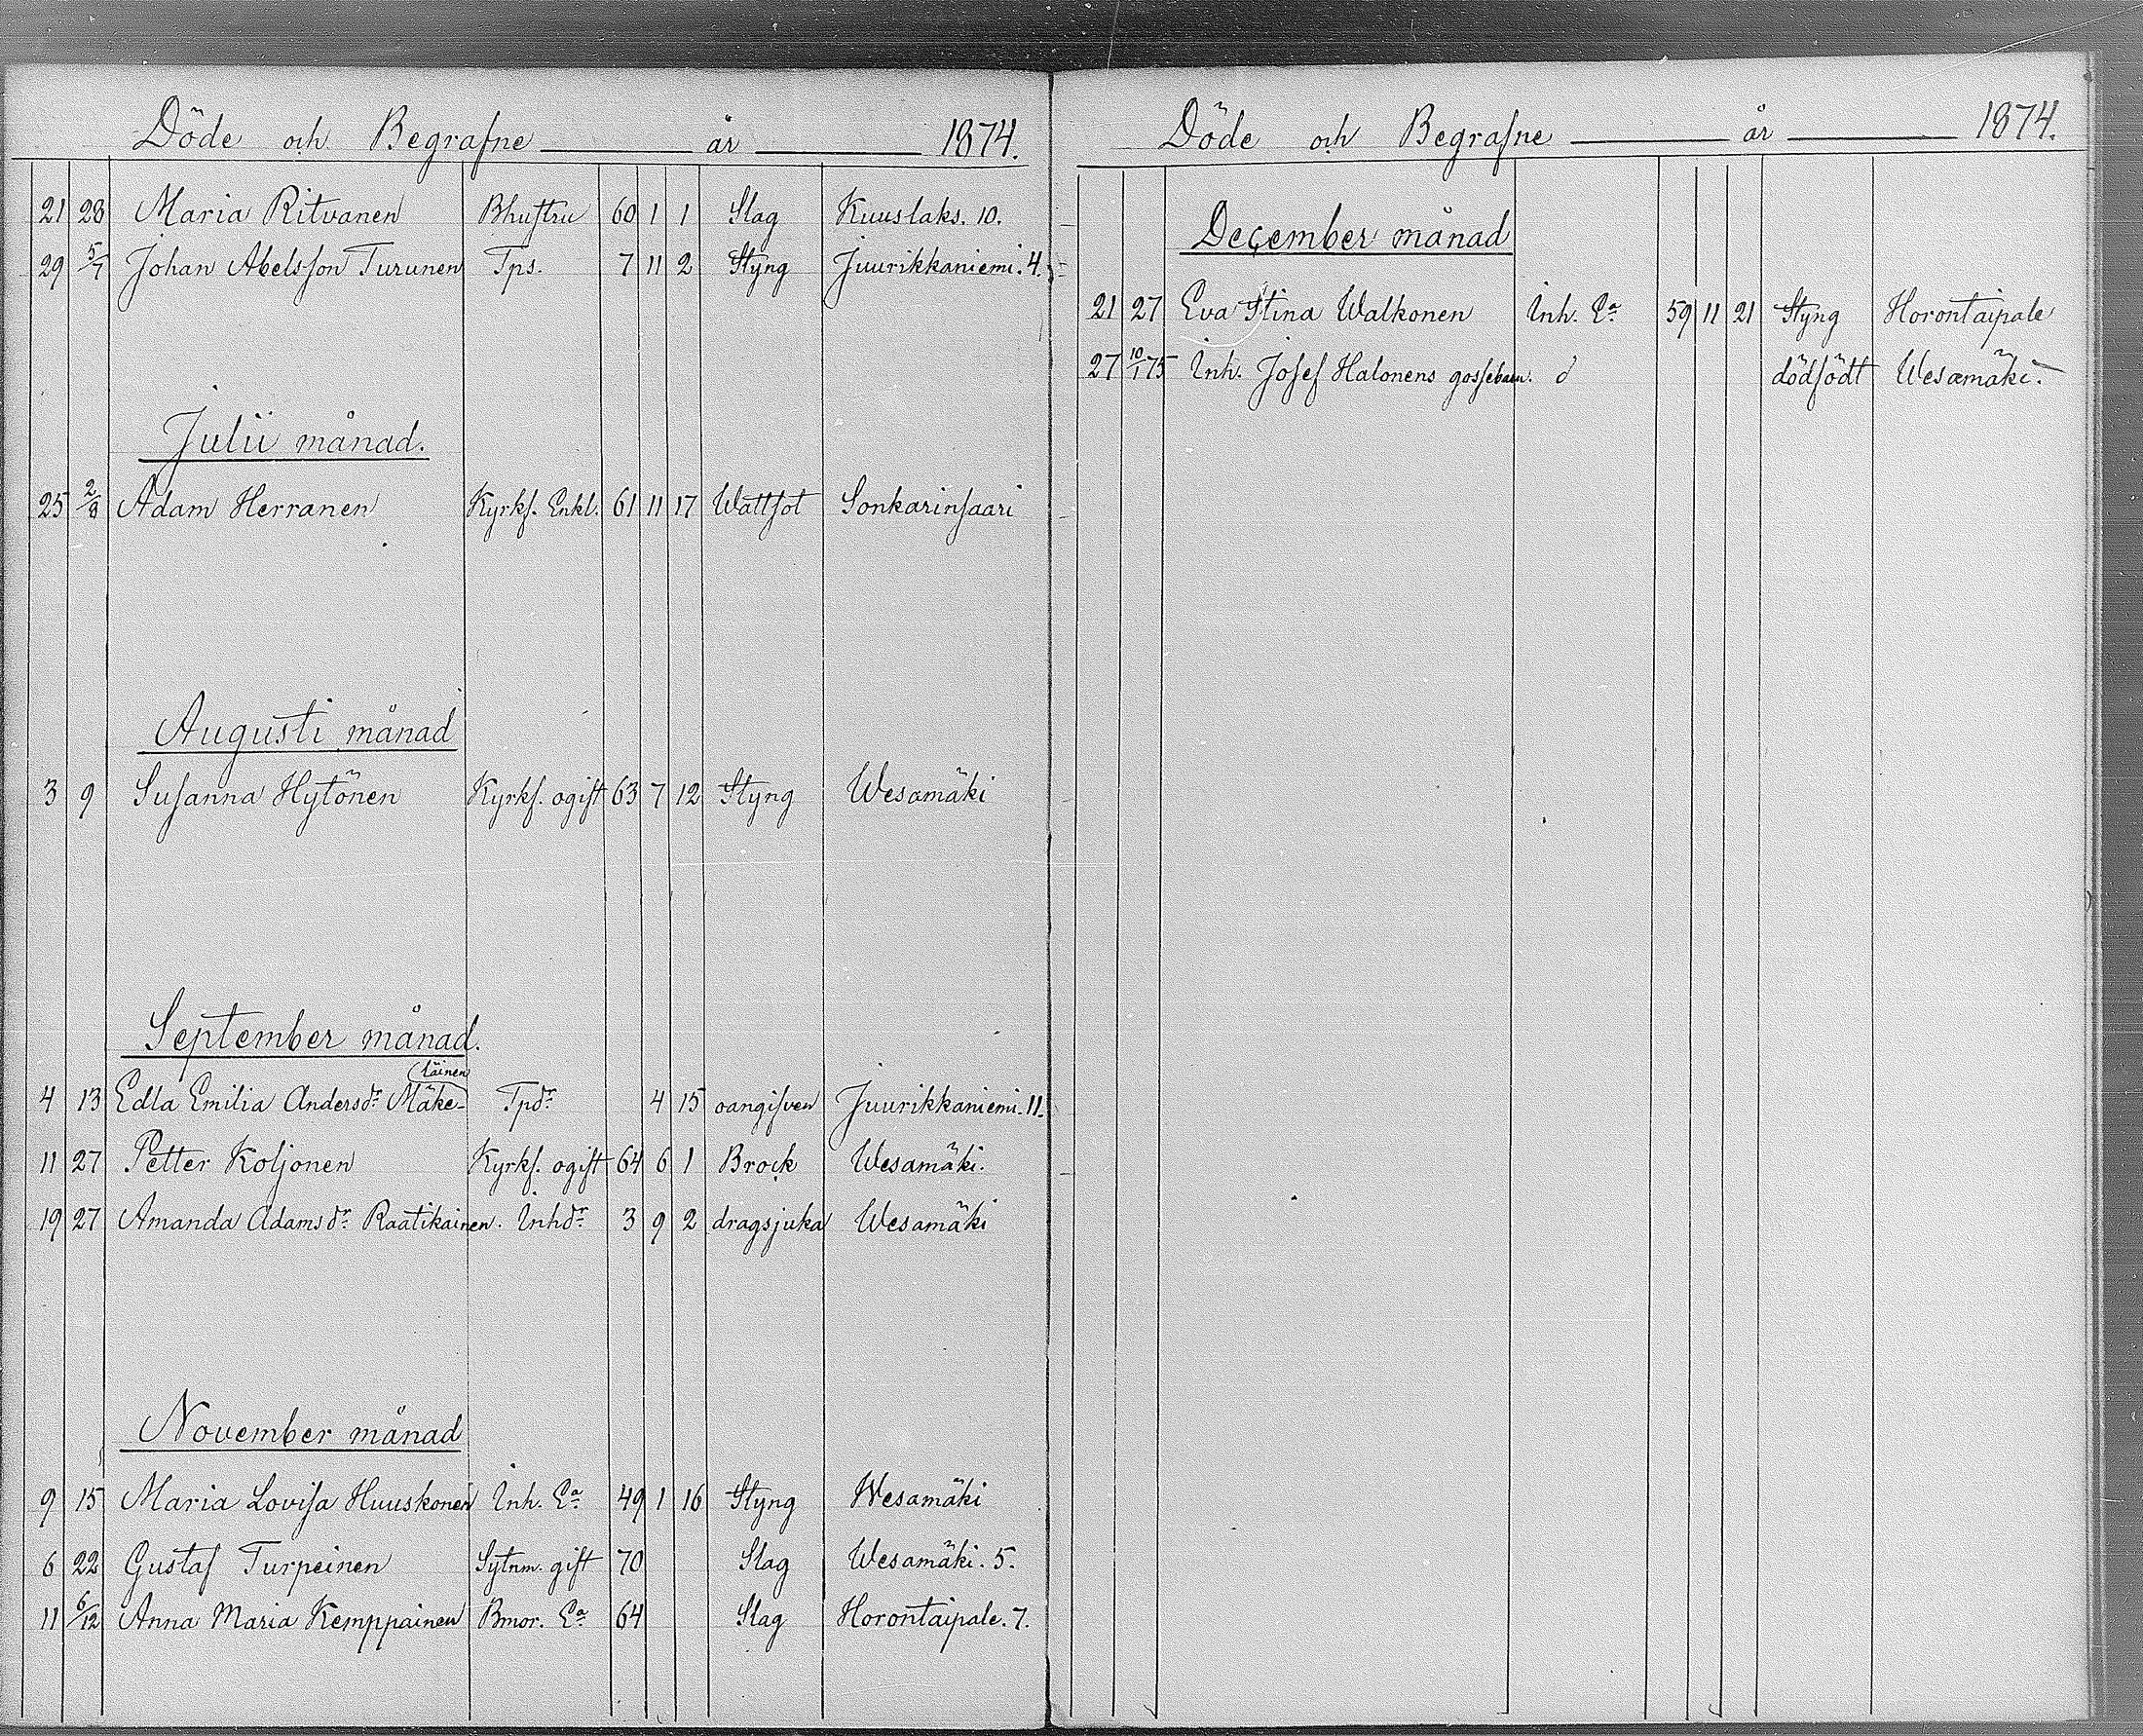 Döde och Begrafne år 1874.
21 28 Maria Ritvanen Bhustru 60 1 1 Slag Kuuslaks. 10.
29 5/7 Johan Abelsson Turunen Tps. 7 11 2 Styng Juurikkaniemi. 4.
Julii månad.
25 2/8 Adam Herranen Kyrkf. Enkl. 61 11 17 Wattsot Sonkarinsaari
Augusti månad
3 9 Susanna Hytönen Kyrkf. ogift 63 7 12 Styng Wesamäki
September månad.
läinen
4 13 Edla Emilia Andersdr Mäke- Tpdr 4 15 oangifven Juurikkaniemi. 11.
11 27 Petter Koljonen Kyrkf. ogift 64 6 1 Brock Wesamäki.
19 27 Amanda Adamsdr Raatikainen. Inhdr 3 9 2 dragsjuka Wesamäki
November månad
9 15 Maria Lovisa Huuskonen Inh. Ea 49 1 16 Styng Wesamäki
6 22 Gustaf Turpeinen Sytnm. gift 70 Slag Wesamäki. 5.
11 6/12 Anna Maria Kemppainen Bmor. Ea 64 Slag Horontaipale. 7.
Döde och Begrafne år 1874.
December månad
21 27 Eva Stina Walkonen Inh. Ea 59 11 21 Styng Horontaipale
27 10/1 75 Inh. Josef Halonens gossebarn. dödfödt Wesamäki.